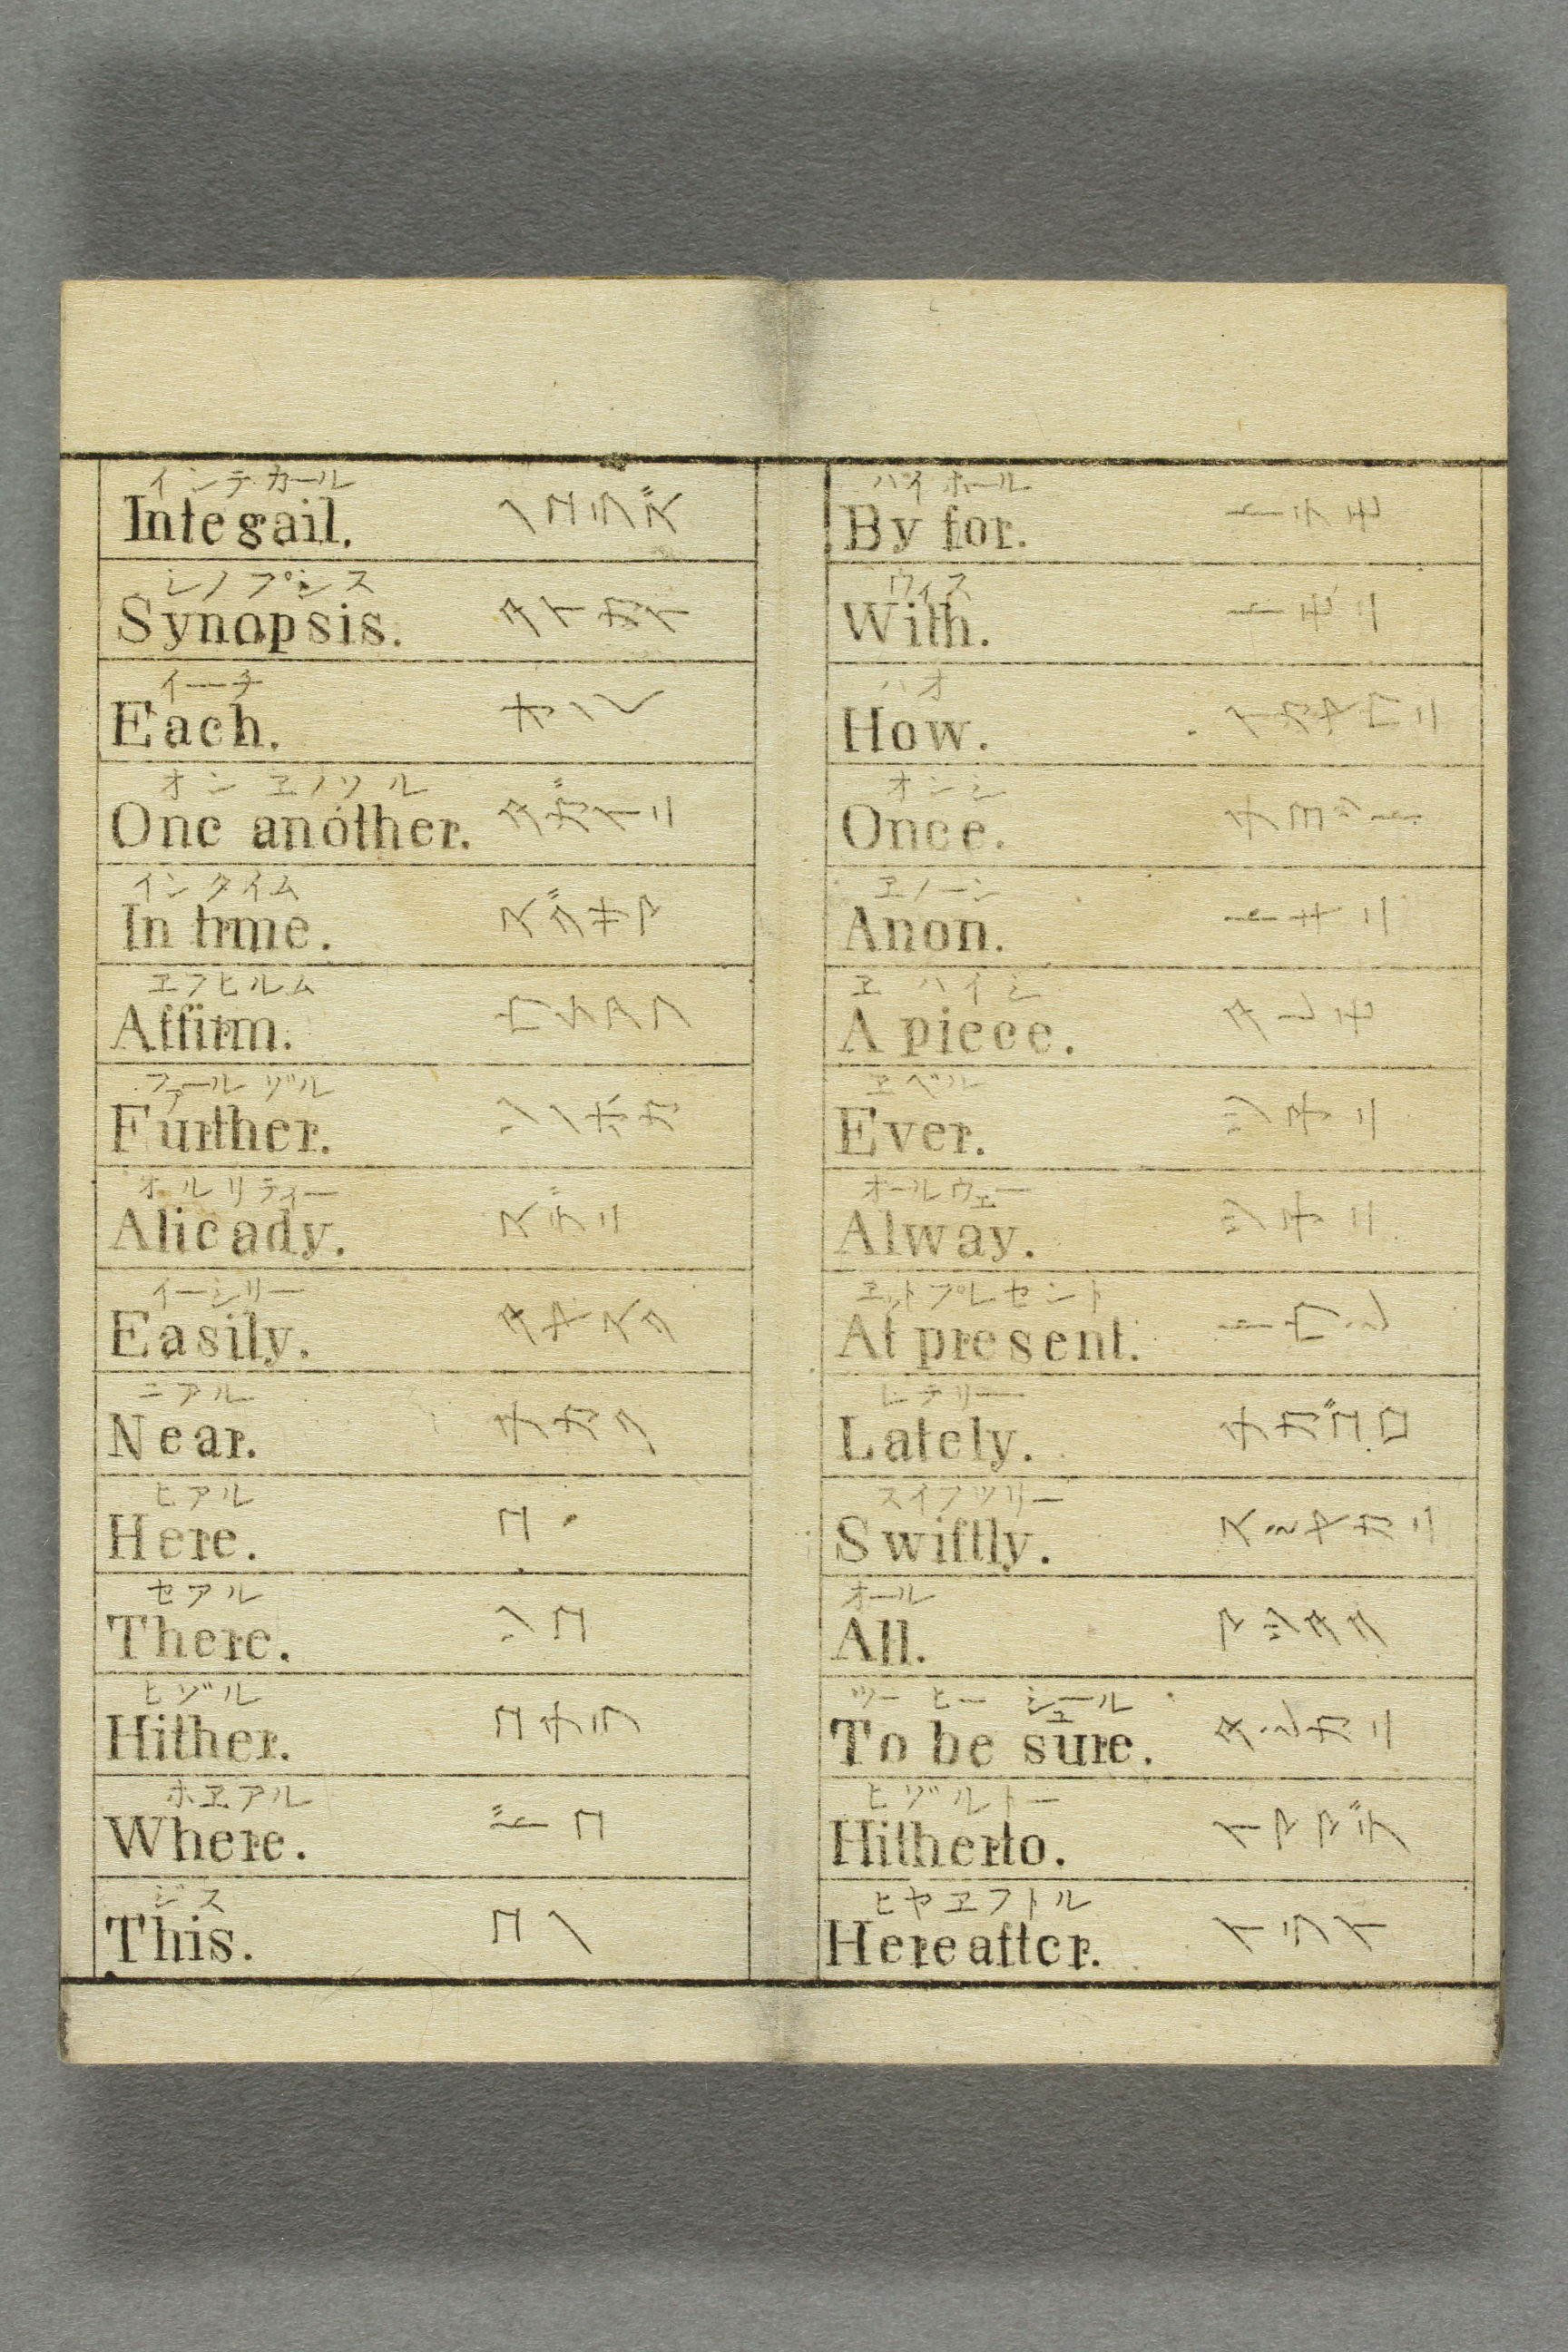 インテカール
Integail.
シノプシス
Synopsis.
イーチ
Each. オノ〱
オン ヱノソル
One another. タガイニ
イン タイム
In trme.
ヱフヒルム
Affirm.
ファールゾル
Further.
オルリティー
Alicady. スデニ
イーシリー
Easily. タヤスク
ニアル
Near. チカク
ヒアル
Here. コヽ
セアル
There. ソコ
ヒゾル
Hither.
ホヱアル
Where. ドコ
ジス
This. コノ
ハイ ホール
By for.
ウィス
With. トモニ
ハオ
How. イカヤウニ
オンシ
Once.
ヱノーン
Anon.
ヱ ハイシ
A piece.
ヱベル
Ever. ツネニ
オールウェー
Alway. ツネニ
ヱットプレセント
At present.
レテリー
Lately. チカゴロ
スイフツリー
Swiftly. スミヤカニ
オール
All. マツタク
ツー ヒー シュール
To be sure. タシカニ
ヒゾルトー
Hitherto. イママデ
ヒヤヱフトル
Hereafter.